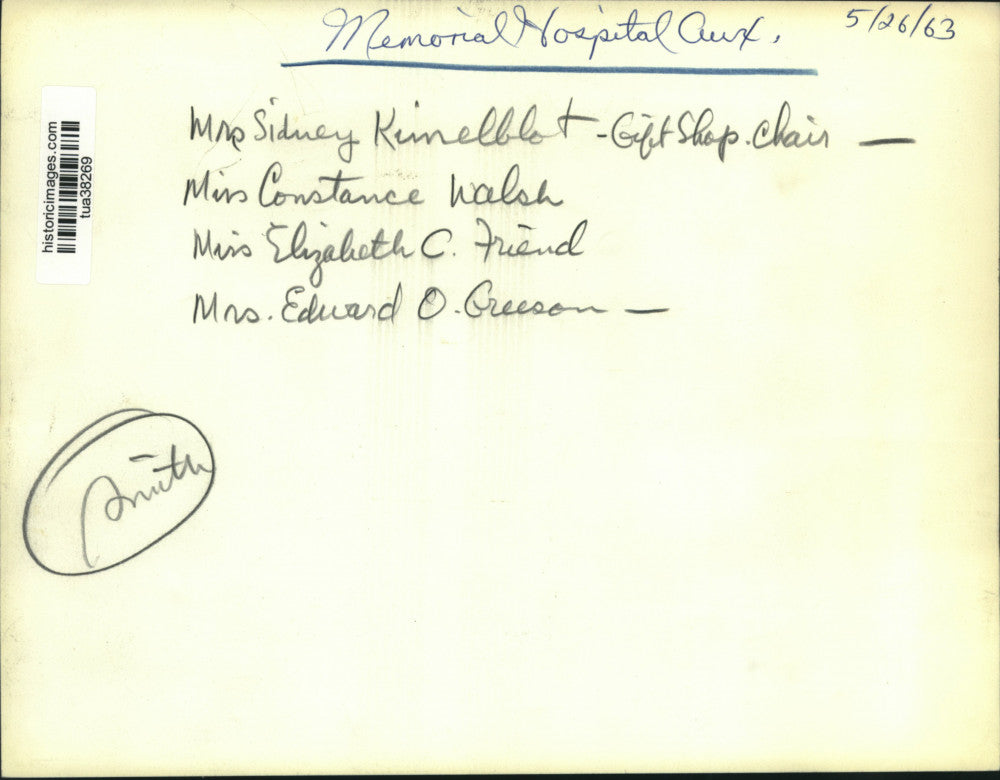 Memorial Hospital Aux. 5/26/63
Mrs Sidney Kimelblot - Gift Shop. Chair —
Miss Constance Walsh
Miss Elizabeth C. Friend
Mrs. Edward O. Greeson —
Smith
historicimages.com
tua38269